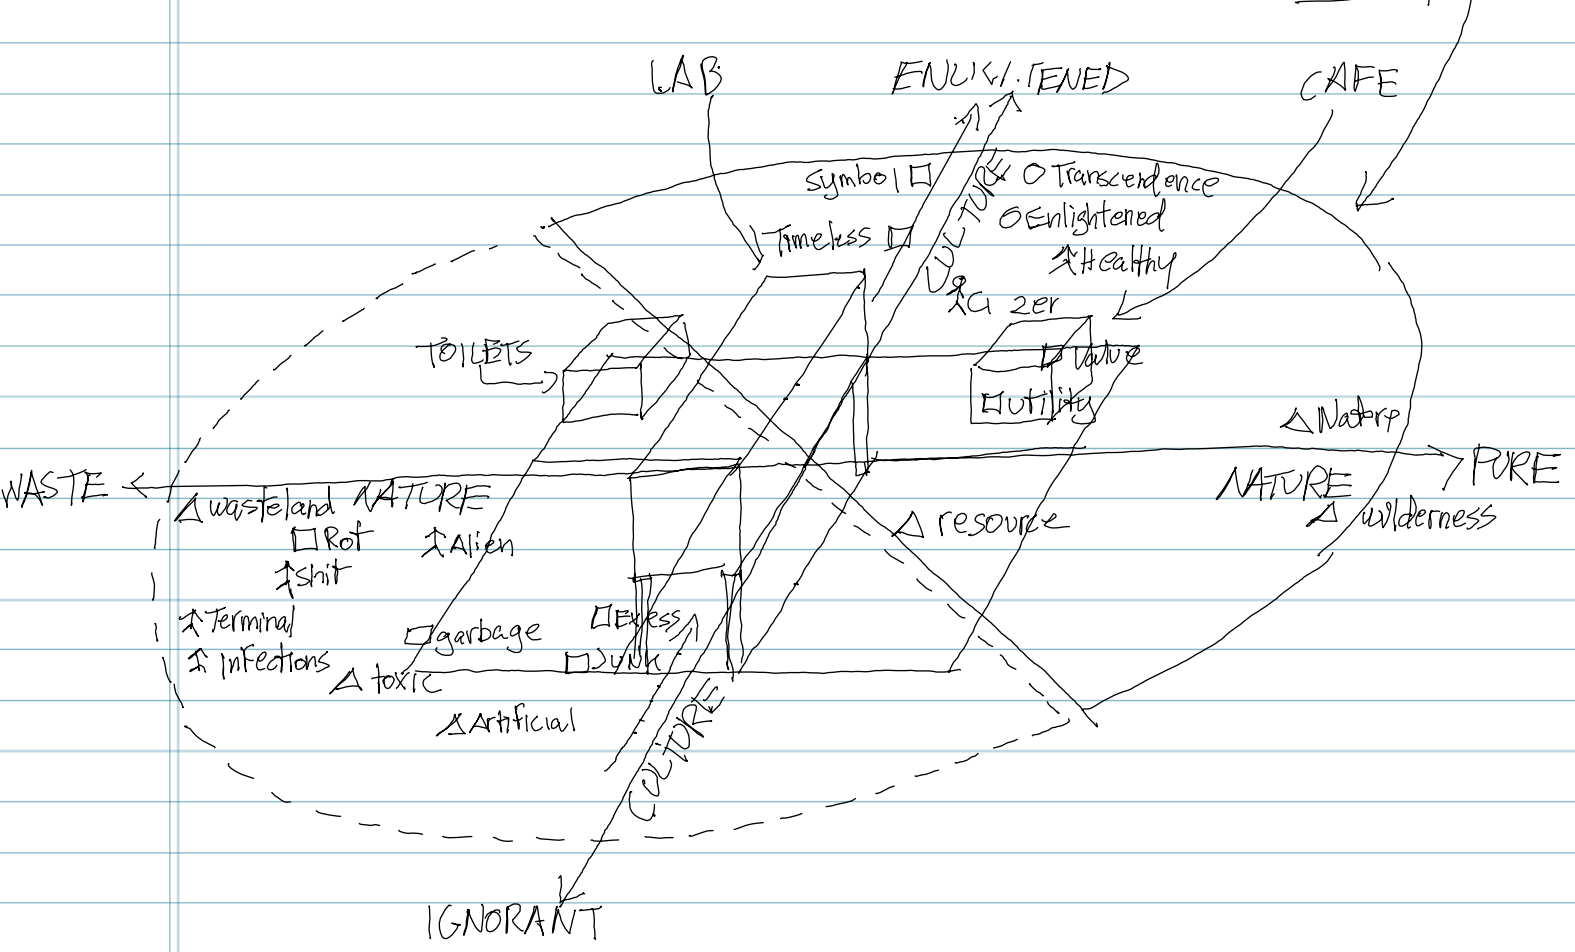 LAB
ENLIGHTENED
CAFE
symbol
CULTURE
Transcendence
Enlightened
Timeless
Healthy
TOILETS
value
utility
Nature
WASTE
PURE
NATURE
NATURE
wasteland
wilderness
resource
Rot
Alien
shit
Terminal
Exess
garbage
Infections
JUNK
toxic
Artificial
CULTURE
IGNORANT